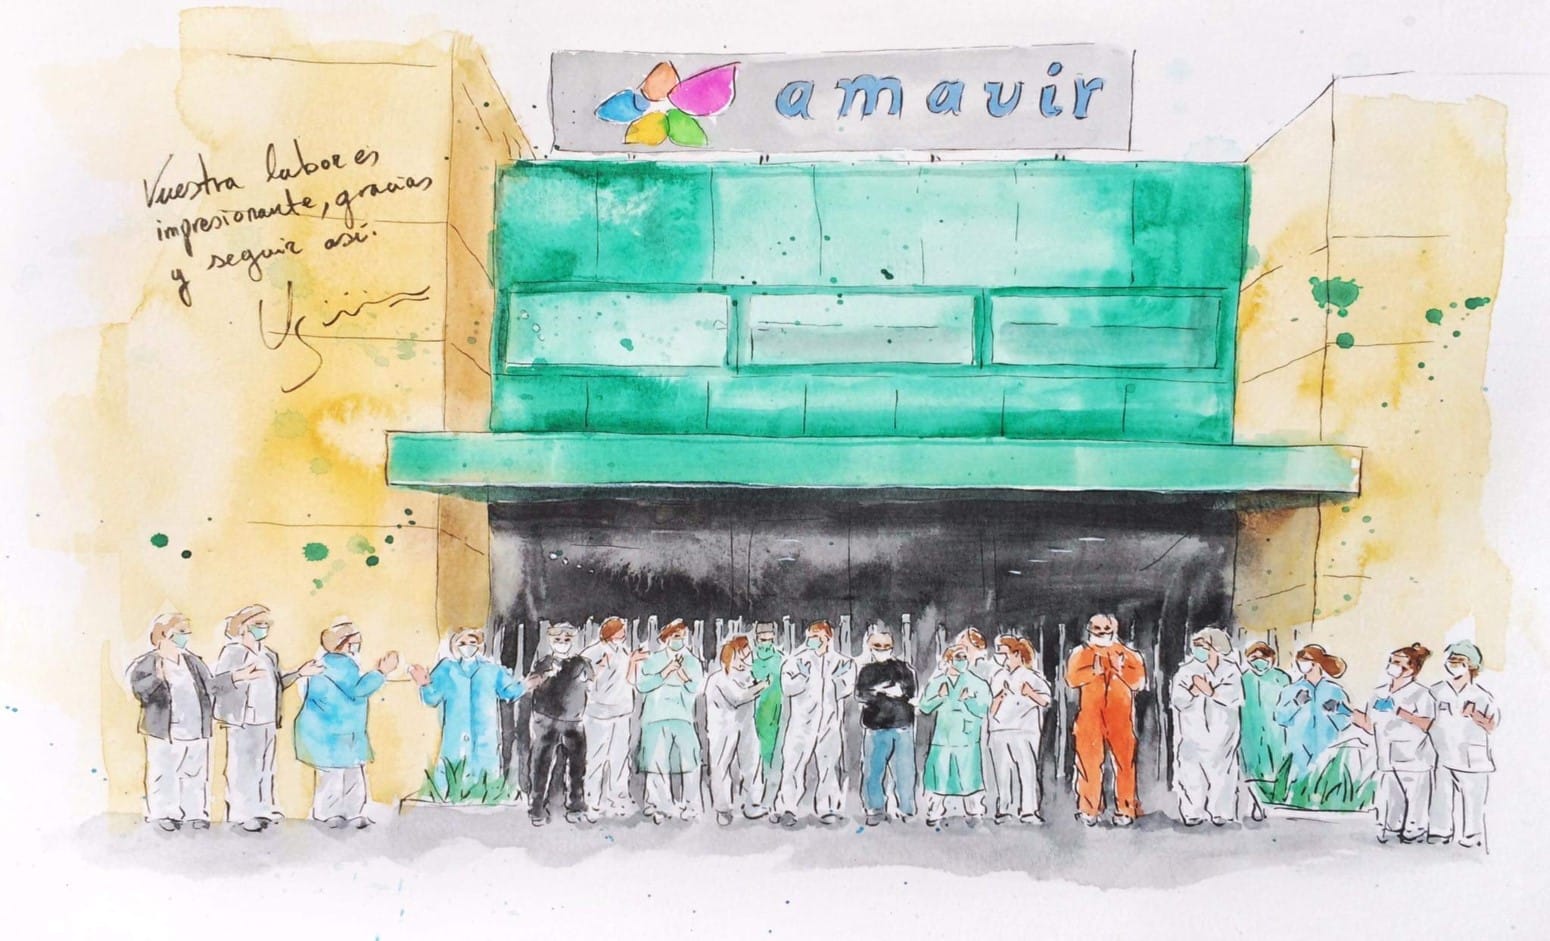 amavir
Vuestra labor es
impresionante, gracias
y seguir así.